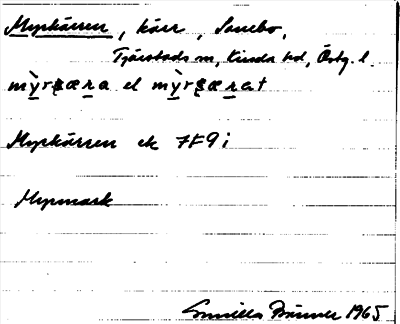 Myrkärren, kärr, Sanebo,
Tjärstads sn, Kinda hd, Östg. l.
mỳrʂæra el mỳrʂærat
Myrkärren ek 7F9i
Myrmark
Gunilla 1965